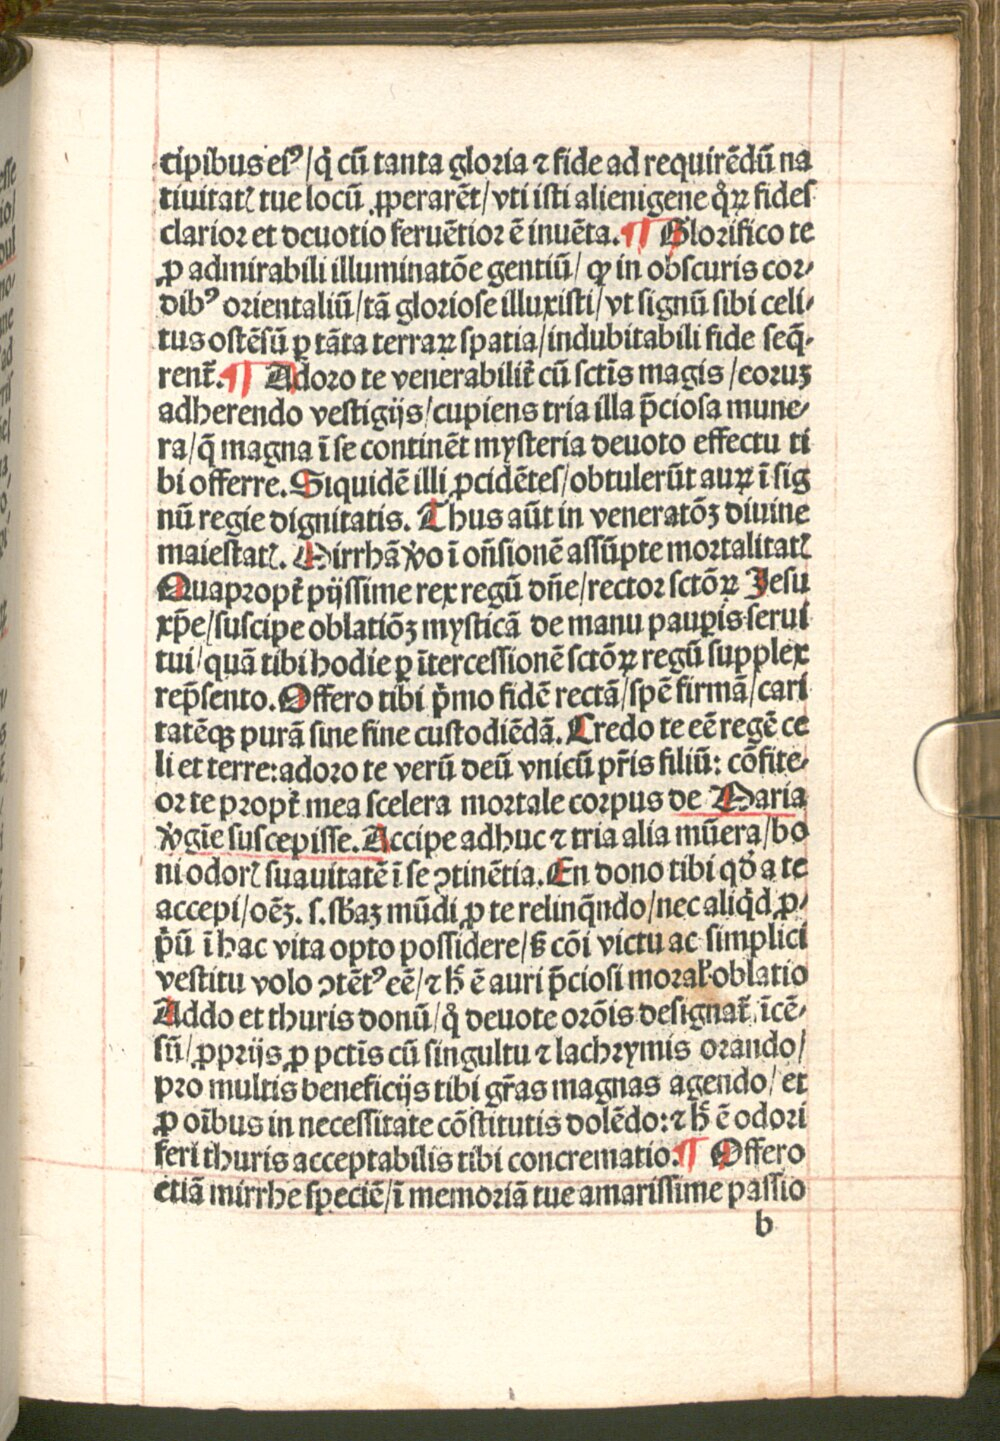 cipibus eiꝰ/q̇ cū tanta gloria ⁊ fide ad requirēdū na
tiuitatꝭ tue locū ꝓperarēt/vti isti alienigene q̇ꝝ fides
clarior et deuotio feruētior ē inuēta. ¶ Glorifico te
ꝓ admirabili illuminatōe gentiū/ ꝙ in obscuris cor⸗
dibꝰ orientaliū/tā gloriose illuxisti/vt signū sibi celi⸗
tus ostēsū ꝑ tāta terraꝝ spatia/indubitabili fide seq̄⸗
rent̄. ¶ Adoro te venerabilit̄ cū sctīs magis/eoruꝫ
adherendo vestigijs/cupiens tria illa p̄ciosa mune⸗
ra/q̄ magna ī se continēt mysteria deuoto effectu ti
bi offerre. Siquidē illi ꝓcidētes/obtulerūt auꝝ ī sig
nū regie dignitatis. Thus aūt in veneratōꝫ diuine
maiestatꝭ. Mirrhā ꝟo ī on̄sionē assūpte mortalitatꝭ
Quapropt̄ pijssime rex regū dn̄e/rector sctōꝝ Jesu
xp̄e/suscipe oblatiōꝫ mysticā de manu pauꝑis serui
tui/quā tibi hodie ꝑ ītercessionē sctōꝝ regū supplex
rep̄sento. Offero tibi p̄mo fidē rectā/spē firmā/cari
tatēqꝫ purā sine fine custodiēdā. Credo te eē regē ce
li et terre:adoro te verū deū vnicū pr̄is filiū: cōfite⸗
or te propt̄ mea scelera mortale corpus de Maria
ꝟgīe suscepisse. Accipe adhuc ⁊ tria alia mūera/bo
ni odorꝭ suauitatē ī se ꝯtinētia. En dono tibi qd̓ a te
accepi/oēꝫ. s. sb̄aꝫ mūdi ꝓ te relinq̄ndo/nec aliq̇d ꝓ⸗
p̓ū ī hac vita opto possidere/ꟗ cōi victu ac simplici
vestitu volo ꝯtētꝰ eē/⁊ h̄ ē auri p̄ciosi moral̓ oblatio
Addo et thuris donū/q̇ deuote orōis designat̄ īcē⸗
sū/ꝓprijs ꝓ pctīs cū singultu ⁊ lachrymis orando/
pro multis beneficijs tibi gr̄as magnas agendo/ et
ꝓ oībus in necessitate cōstitutis dolēdo:⁊ h̄ ē odori
feri thuris acceptabilis tibi concrematio. ¶ Offero
etiā mirrhe speciē/ī memoriā tue amarissime passio
b